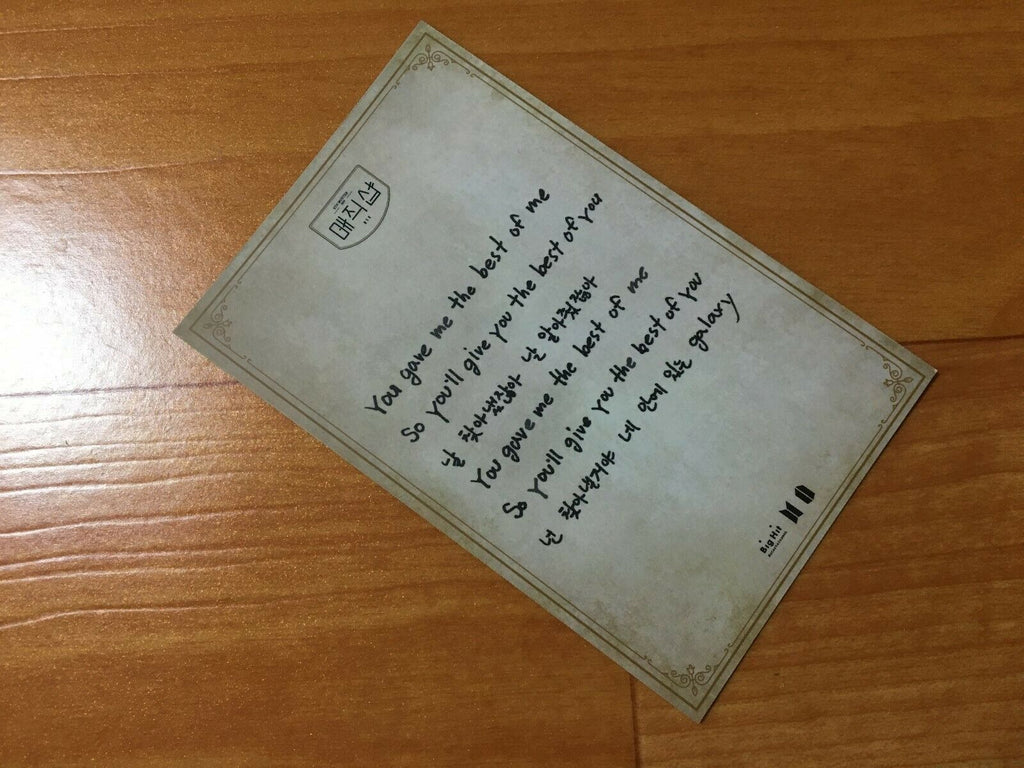 매직샵
You gave me the best of me
So you'll give you the best of you
날 찾아냈잖아 날 알아줬잖아
You gave me the best of me
So you'll give you the best of you
넌 찾아낼거야 네 안에 있는 galaxy
BigHit